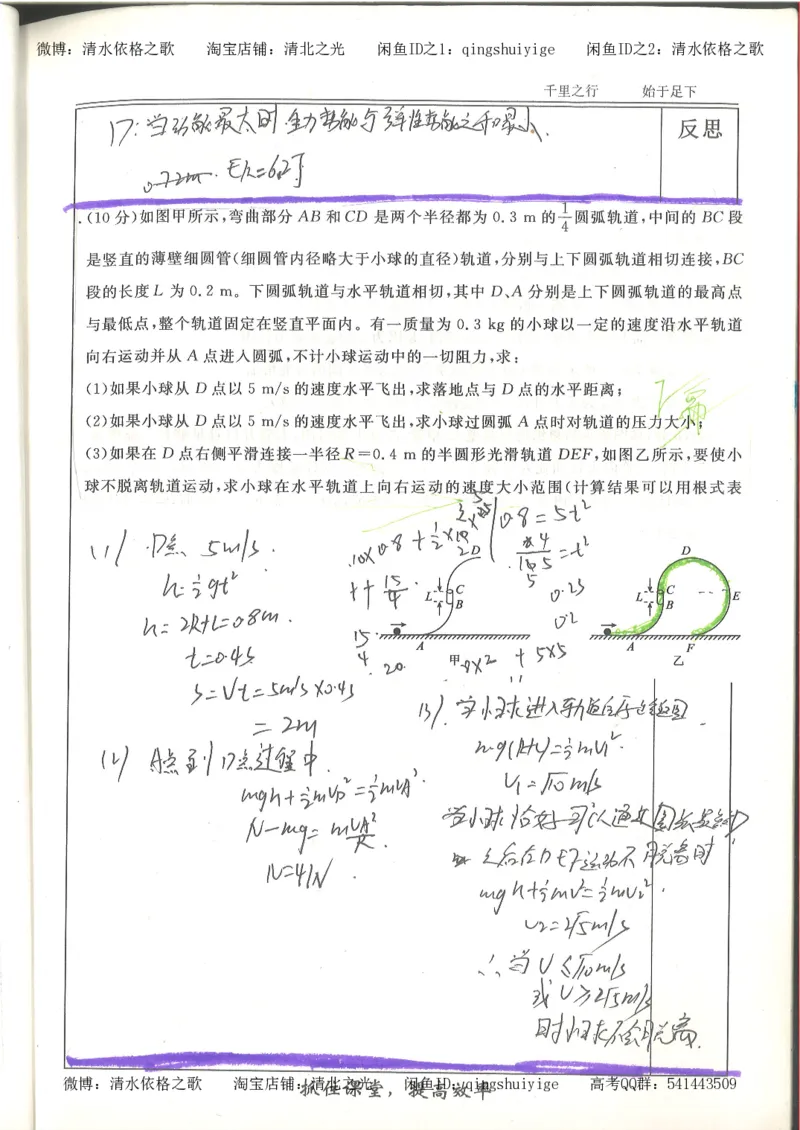 微博：清水依格之歌 淘宝店铺：清北之光 闲鱼ID之1：qingshuiyige 闲鱼ID之2：清水依格之歌
千里之行 始于足下
17：当动能最大时.重力势能与弹性势能之和最小.
反思
0.72m. Ek=6.2J
.(10分)如图甲所示,弯曲部分AB和CD是两个半径都为0.3 m的1/4圆弧轨道,中间的BC段
是竖直的薄壁细圆管(细圆管内径略大于小球的直径)轨道,分别与上下圆弧轨道相切连接,BC
段的长度L为0.2 m。下圆弧轨道与水平轨道相切,其中D、A分别是上下圆弧轨道的最高点
与最低点,整个轨道固定在竖直平面内。有一质量为0.3 kg的小球以一定的速度沿水平轨道
向右运动并从A点进入圆弧,不计小球运动中的一切阻力,求:
(1)如果小球从D点以5 m/s的速度水平飞出,求落地点与D点的水平距离;
(2)如果小球从D点以5 m/s的速度水平飞出,求小球过圆弧A点时对轨道的压力大小;
(3)如果在D点右侧平滑连接一半径R=0.4 m的半圆形光滑轨道DEF,如图乙所示,要使小
球不脱离轨道运动,求小球在水平轨道上向右运动的速度大小范围(计算结果可以用根式表
0.8=5t²
(1) D点 5m/s.
h=½gt²
h=2R+L=0.8m.
t=0.4s
s=Vt=5m/s×0.4s
=2m
D
L
C
B
A
甲
D
L
C
B
E
A
F
乙
(2) A点到D点过程中.
mgh+½mVD²=½mVA².
N-mg=mVA²/R.
N=41N.
(3) 当小球进入轨道后原路返回
mg(R+L)=½mV1².
V1=√10m/s
mgh+½mv²=½mV2².
V2=2√5m/s
∴当V≤√10m/s
或V≥2√5m/s
时小球不会脱离.
微博：清水依格之歌 淘宝店铺：清北之光 闲鱼ID：qingshuiyige 高考QQ群：541443509
抓住课堂，提高效率